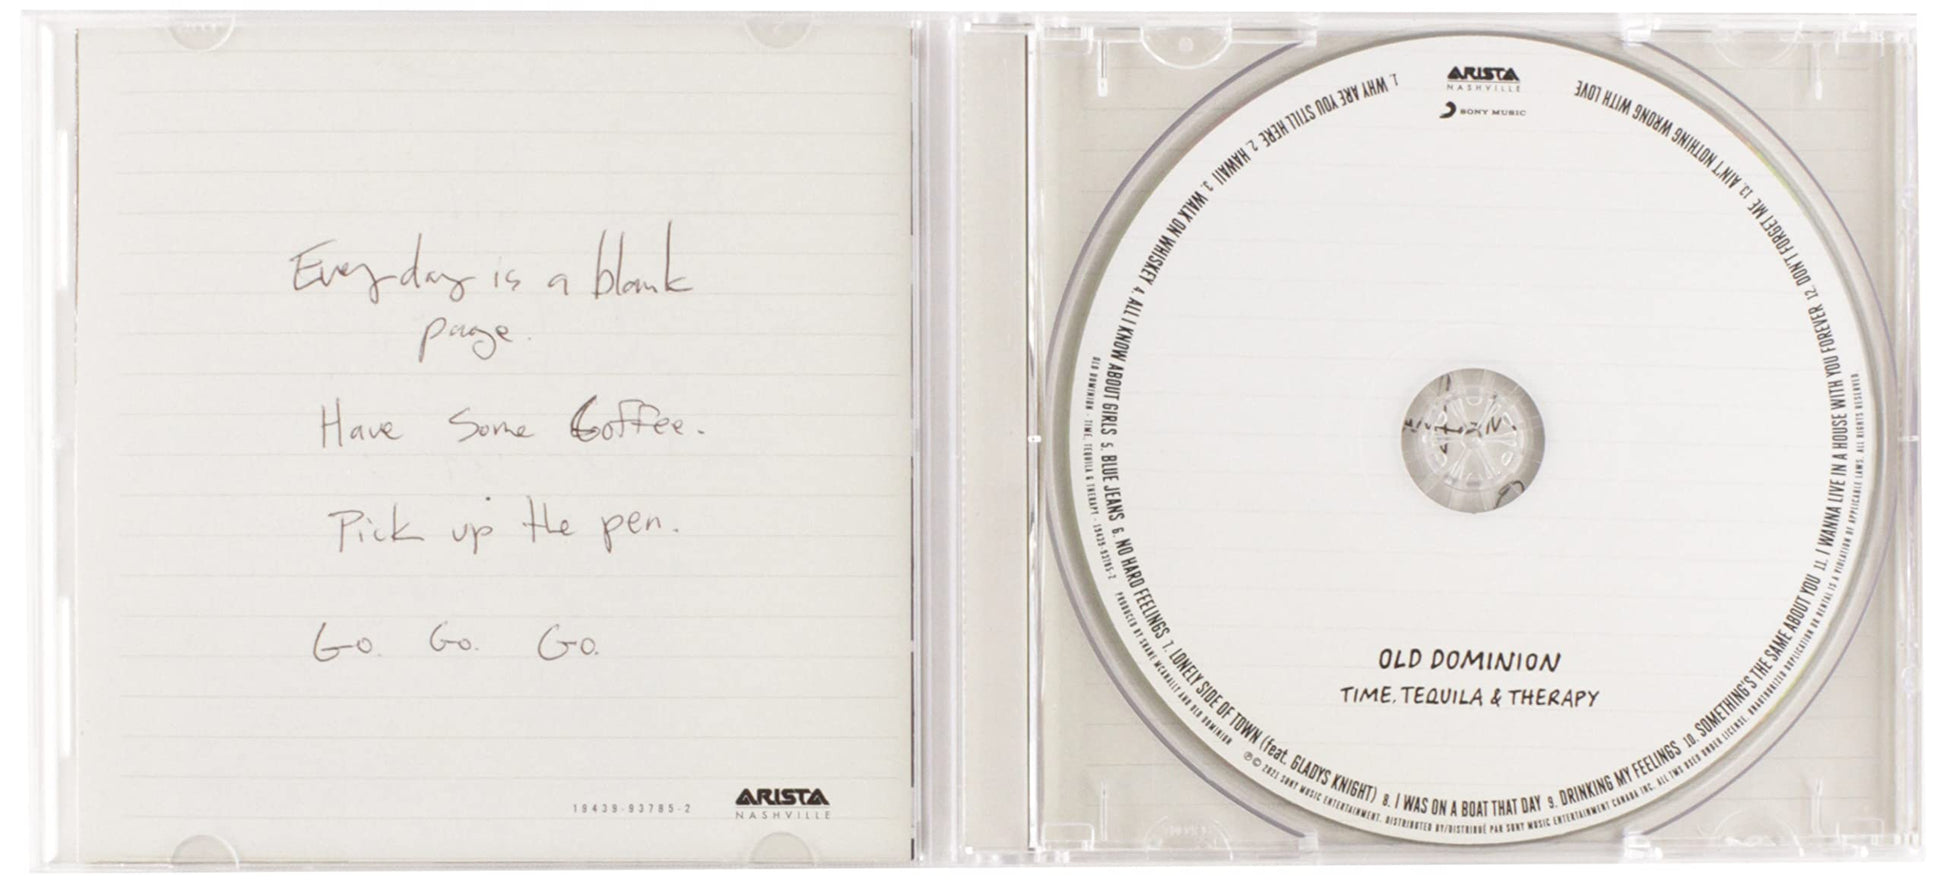 Everyday is a blank
page.
Have Some Coffee.
Pick up the pen.
Go. Go. Go.
19439-93785-2
ARISTA
NASHVILLE
ARISTA
NASHVILLE
SONY MUSIC
1. WHY ARE YOU STILL HERE 2. HAWAII 3. WALK ON WHISKEY 4. ALL I KNOW ABOUT GIRLS 5. BLUE JEANS 6. NO HARD FEELINGS 7. LONELY SIDE OF TOWN (feat. GLADYS KNIGHT) 8. I WAS ON A BOAT THAT DAY 9. DRINKING MY FEELINGS 10. SOMETHING'S THE SAME ABOUT YOU 11. I WANNA LIVE IN A HOUSE WITH YOU FOREVER 12. DON'T FORGET ME 13. AIN'T NOTHING WRONG WITH LOVE
OLD DOMINION
TIME, TEQUILA & THERAPY
OLD DOMINION - TIME, TEQUILA & THERAPY - 19439-93785-2 PRODUCED BY SHANE MCANALLY AND OLD DOMINION
℗© 2021 SONY MUSIC ENTERTAINMENT. DISTRIBUTED BY/DISTRIBUÉ PAR SONY MUSIC ENTERTAINMENT CANADA INC. ALL TMS USED UNDER LICENSE. UNAUTHORIZED DUPLICATION OR RENTAL IS A VIOLATION OF APPLICABLE LAWS. ALL RIGHTS RESERVED